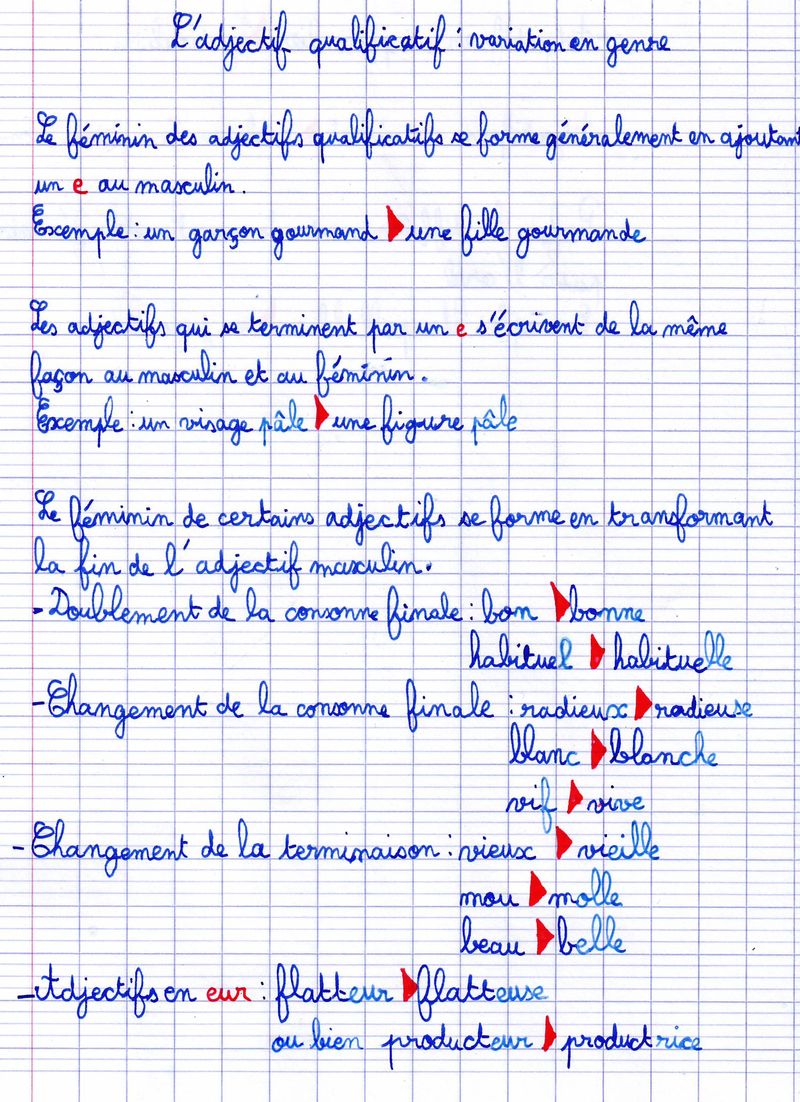 L'adjectif qualificatif : variation en genre
Le féminin des adjectifs qualificatifs se forme généralement en ajoutant
un e au masculin.
Exemple : un garçon gourmand ▶ une fille gourmande
Les adjectifs qui se terminent par un e s'écrivent de la même
façon au masculin et au féminin.
Exemple : un visage pâle ▶ une figure pâle
Le féminin de certains adjectifs se forme en transformant
la fin de l'adjectif masculin.
- Doublement de la consonne finale : bon ▶ bonne
habituel ▶ habituelle
- Changement de la consonne finale : radieux ▶ radieuse
blanc ▶ blanche
vif ▶ vive
- Changement de la terminaison : vieux ▶ vieille
mou ▶ molle
beau ▶ belle
- Adjectifs en eur : flatteur ▶ flatteuse
ou bien producteur ▶ productrice